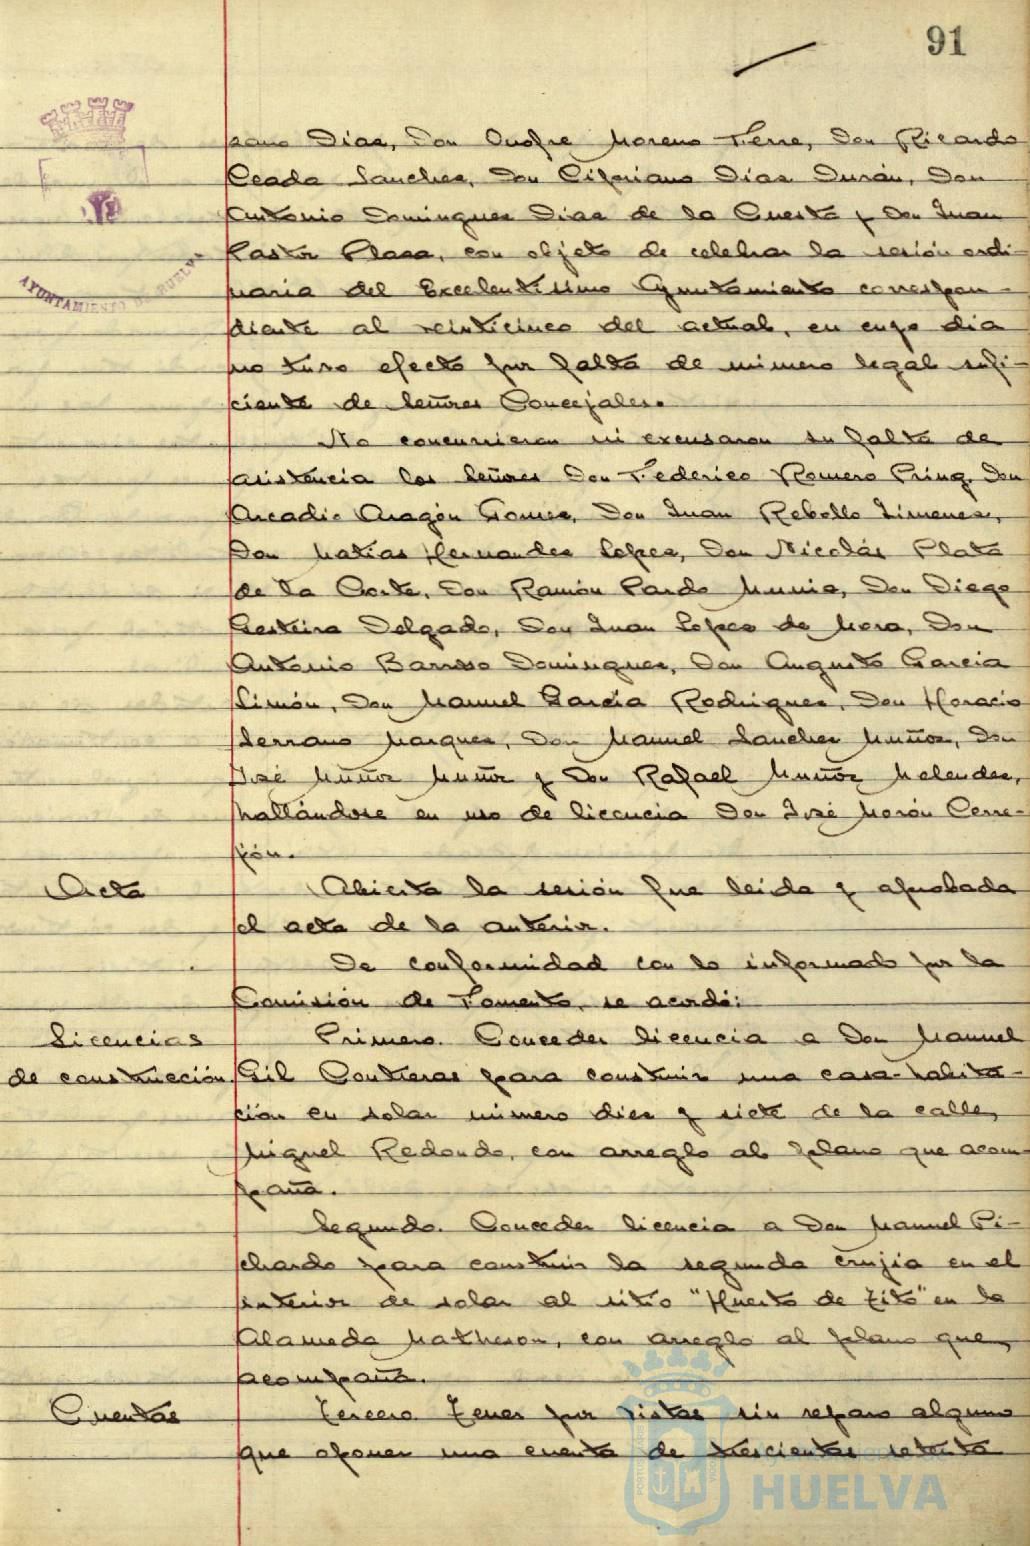 91
AYUNTAMIENTO DE HUELVA
rano Días, Don Onofre Moreno Terre, Don Ricardo
Ceada Sanchez, Don Cipriano Díaz Durán, Don
Antonio Dominguez Diaz de la Cuesta y Don Juan
Pastor Plaza, con objeto de celebrar la sesión ordi-
naria del Excelentísimo Ayuntamiento correspon-
diente al veinticinco del actual, en cuyo dia
no tuvo efecto por falta de número legal sufi-
ciente de Señores Concejales.
No concurrieron ni excusaron su falta de
asistencia los Señores Don Federico Romero Pring, Don
Arcadio Aragón Gomez, Don Juan Rebollo Jimenez,
Don Matías Hernandez Lopez, Don Nicolás Plata
de la Corte, Don Ramón Pardo Munia, Don Diego
Gesteira Delgado, Don Juan Lopez de Mora, Don
Antonio Barroso Dominguez, Don Augusto Garcia
Simón, Don Manuel García Rodriguez, Don Horacio
Serrano Marquez, Don Manuel Sanchez Muñoz, Don
José Muñoz Muñoz y Don Rafael Muñoz Melendez,
hallándose en uso de licencia Don José Morón Corre-
Acta
Abierta la sesión fue leida y aprobada
el acta de la anterior.
De conformidad con lo informado por la
Comisión de Fomento, se acordó:
Licencias
de construcción
Primero. Conceder licencia a Don Manuel
Gil Contreras para construir una casa-habita-
ción en solar número diez y siete de la calle
Miguel Redondo, con arreglo al plano que acom-
paña.
Segundo. Conceder licencia a Don Manuel Pi-
chardo para construir la segunda crujia en el
interior de solar al sitio "Huerto de Tito" en la
Alameda Matheson, con arreglo al plano que
acompaña.
Cuentas
Tercero. Tener por vistas sin reparo alguno
que oponer una cuenta de trescientas setenta
HUELVA